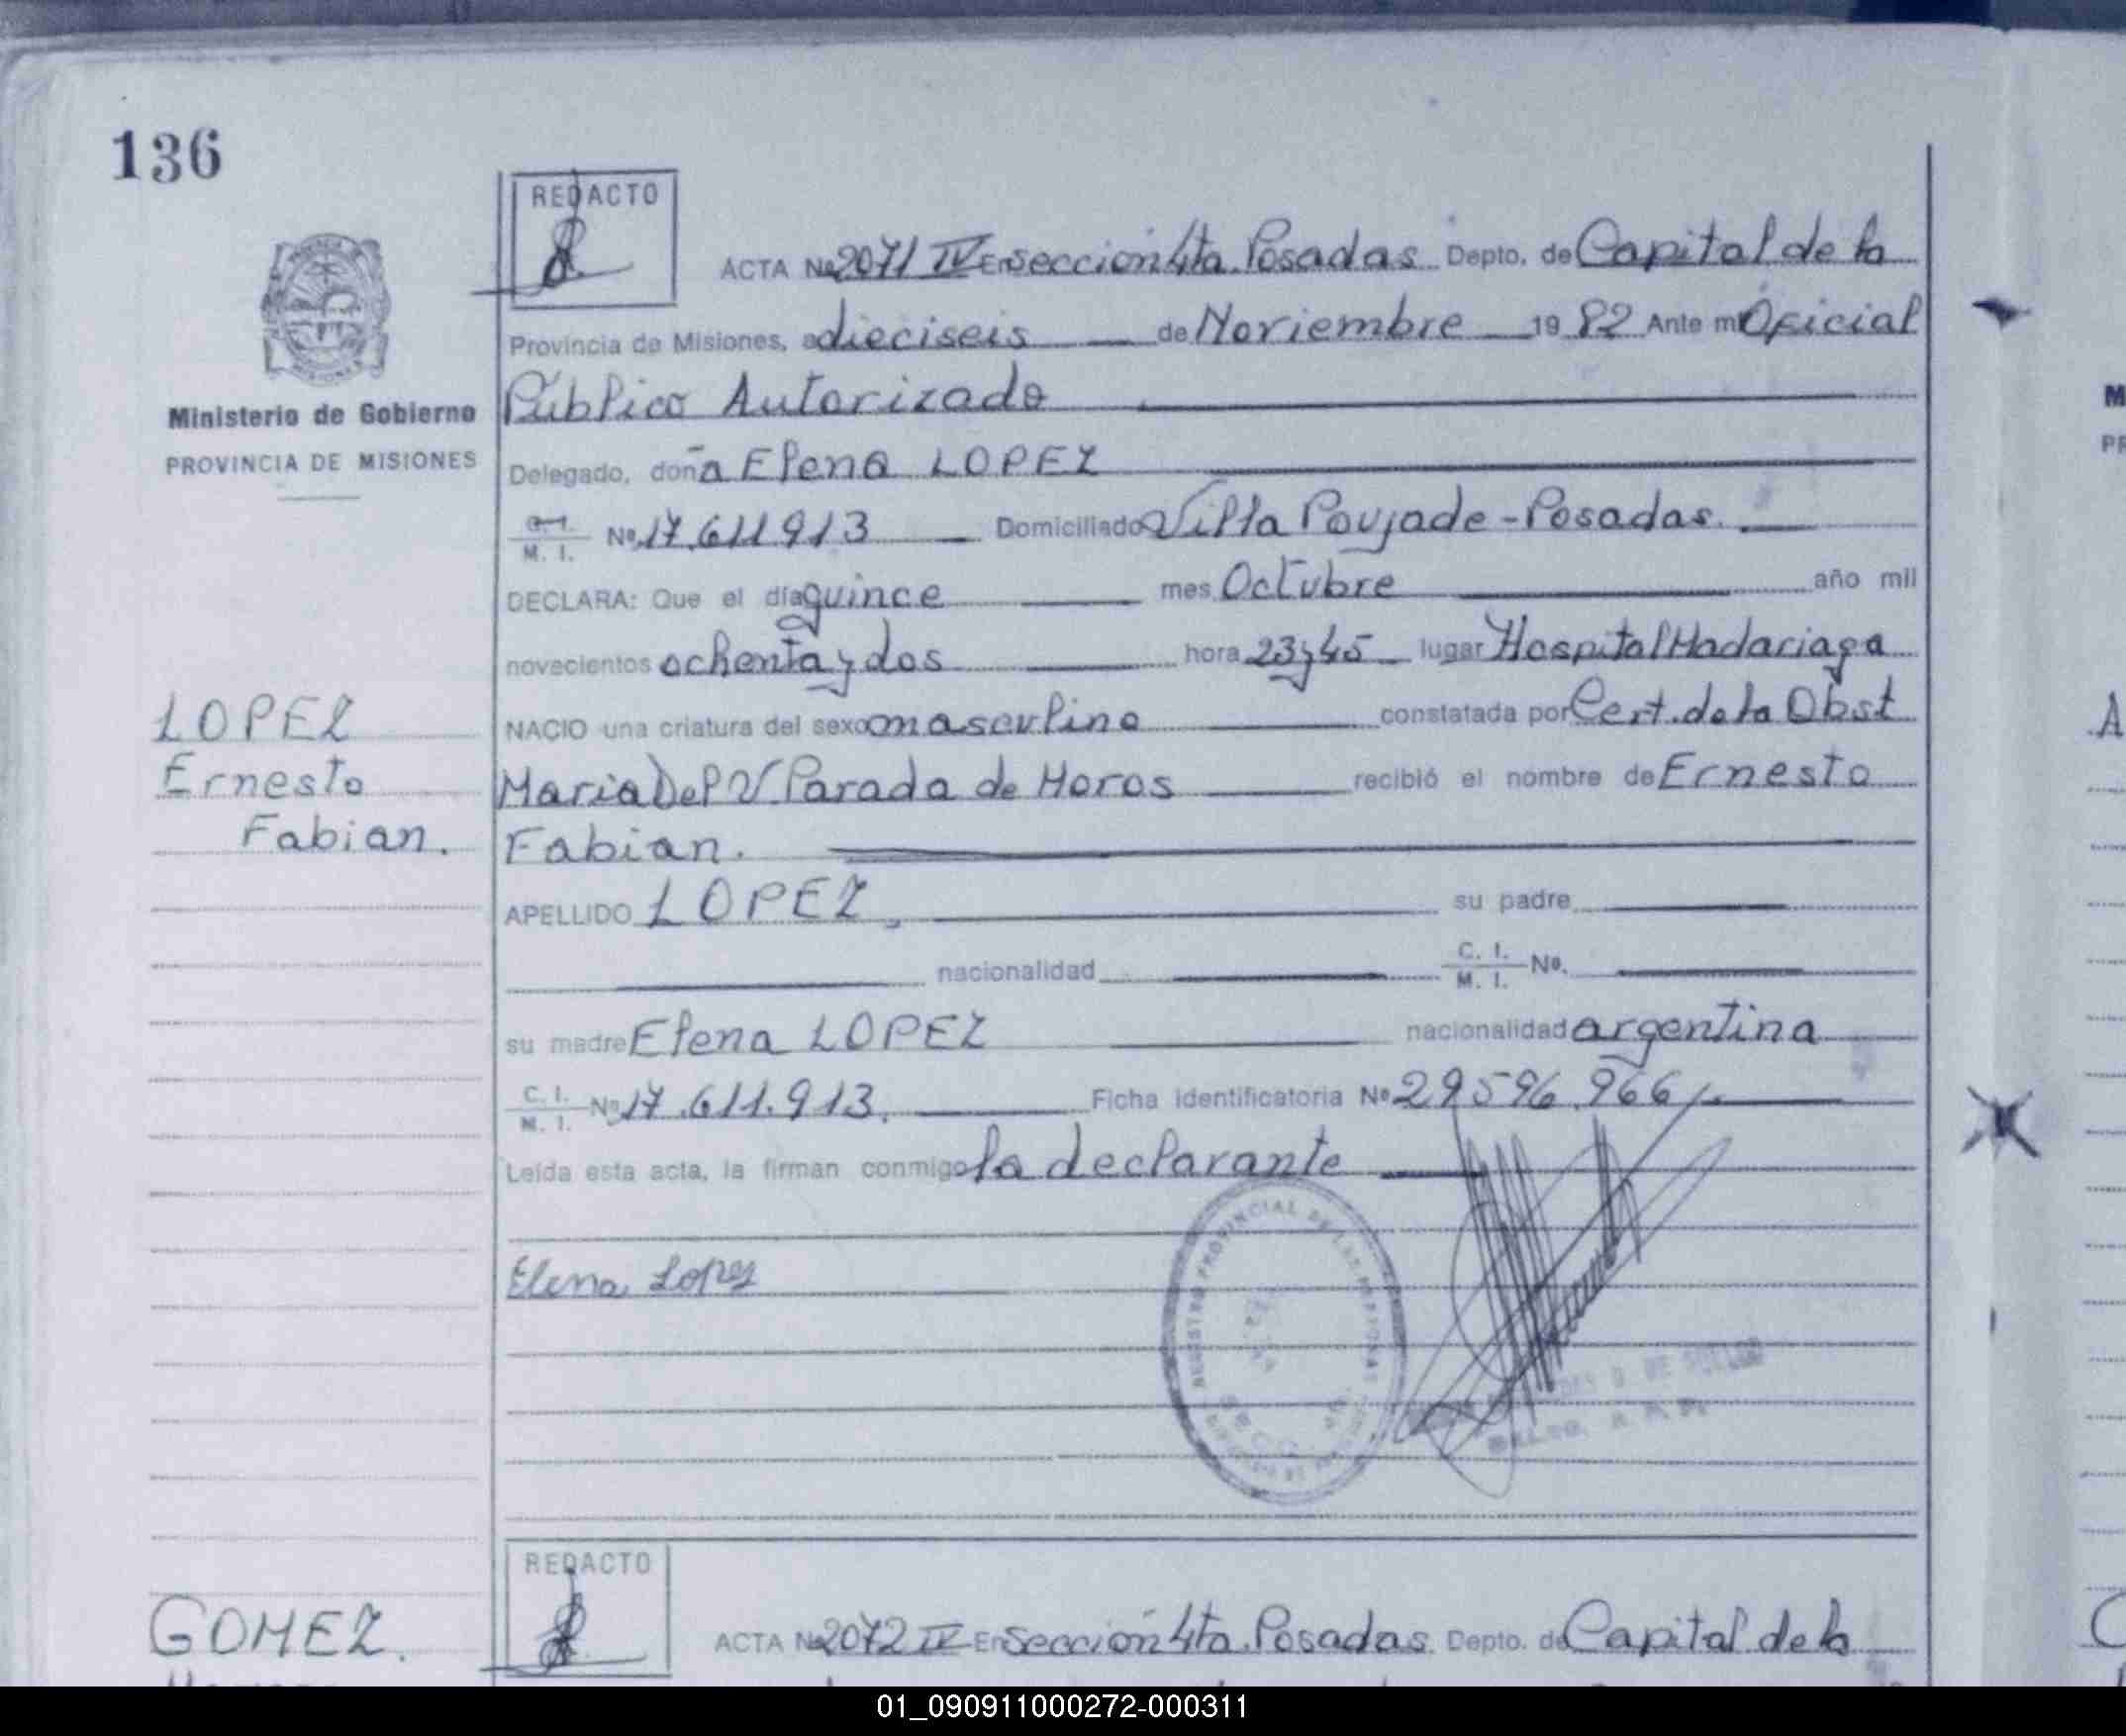 136
REDACTO
ACTA Nº 2071 IV En Seccion 4ta. Posadas Depto. de Capital de la
Provincia de Misiones, a dieciseis de Noviembre 1982 Ante mi Oficial
Público Autorizado
Ministerio de Gobierno
PROVINCIA DE MISIONES
Delegado, doña Elena LOPEZ
C. I. M. I. Nº 17.611.913 Domiciliado Villa Poujade - Posadas.
DECLARA: Que el día quince mes Octubre año mil
novecientos ochenta y dos hora 23 y 45 lugar Hospital Madariaga
LOPEZ
Ernesto
Fabian.
NACIO una criatura del sexo masculino constatada por Cert. de la Obst
Maria Del V. Parada de Moros recibió el nombre de Ernesto
Fabian.
APELLIDO LOPEZ, su padre
nacionalidad C. I. M. I. Nº.
su madre Elena LOPEZ nacionalidad argentina
C. I. M. I. Nº 17.611.913. Ficha Identificatoria Nº 29.596.966/.
Leída esta acta, la firman conmigo la declarante
Elena Lopez
REGISTRO PROVINCIAL DE LAS PERSONAS
REDACTO
GOMEZ.
ACTA Nº 2072 IV En Seccion 4ta. Posadas. Depto. de Capital de la
01_090911000272-000311